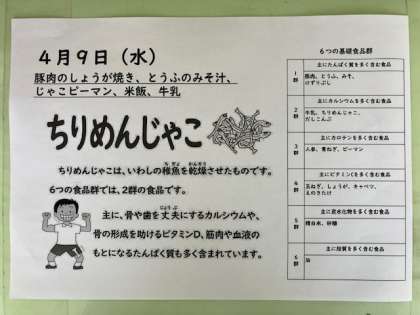 4月9日（水）
豚肉のしょうが焼き、とうふのみそ汁、
じゃこピーマン、米飯、牛乳
ちりめんじゃこ
ちりめんじゃこは、いわしの稚魚を乾燥させたものです。
6つの食品群では、2群の食品です。
主に、骨や歯を丈夫にするカルシウムや、
骨の形成を助けるビタミンD、筋肉や血液の
もとになるたんぱく質も多く含まれています。
6つの基礎食品群
1群
主にたんぱく質を多く含む食品
豚肉、とうふ、みそ、
けずりぶし
2群
主にカルシウムを多く含む食品
牛乳、ちりめんじゃこ、
だしこんぶ
3群
主にカロテンを多く含む食品
人参、青ねぎ、ピーマン
4群
主にビタミンCを多く含む食品
玉ねぎ、しょうが、キャベツ、
えのきたけ
5群
主に炭水化物を多く含む食品
精白米、砂糖
6群
主に脂質を多く含む食品
油